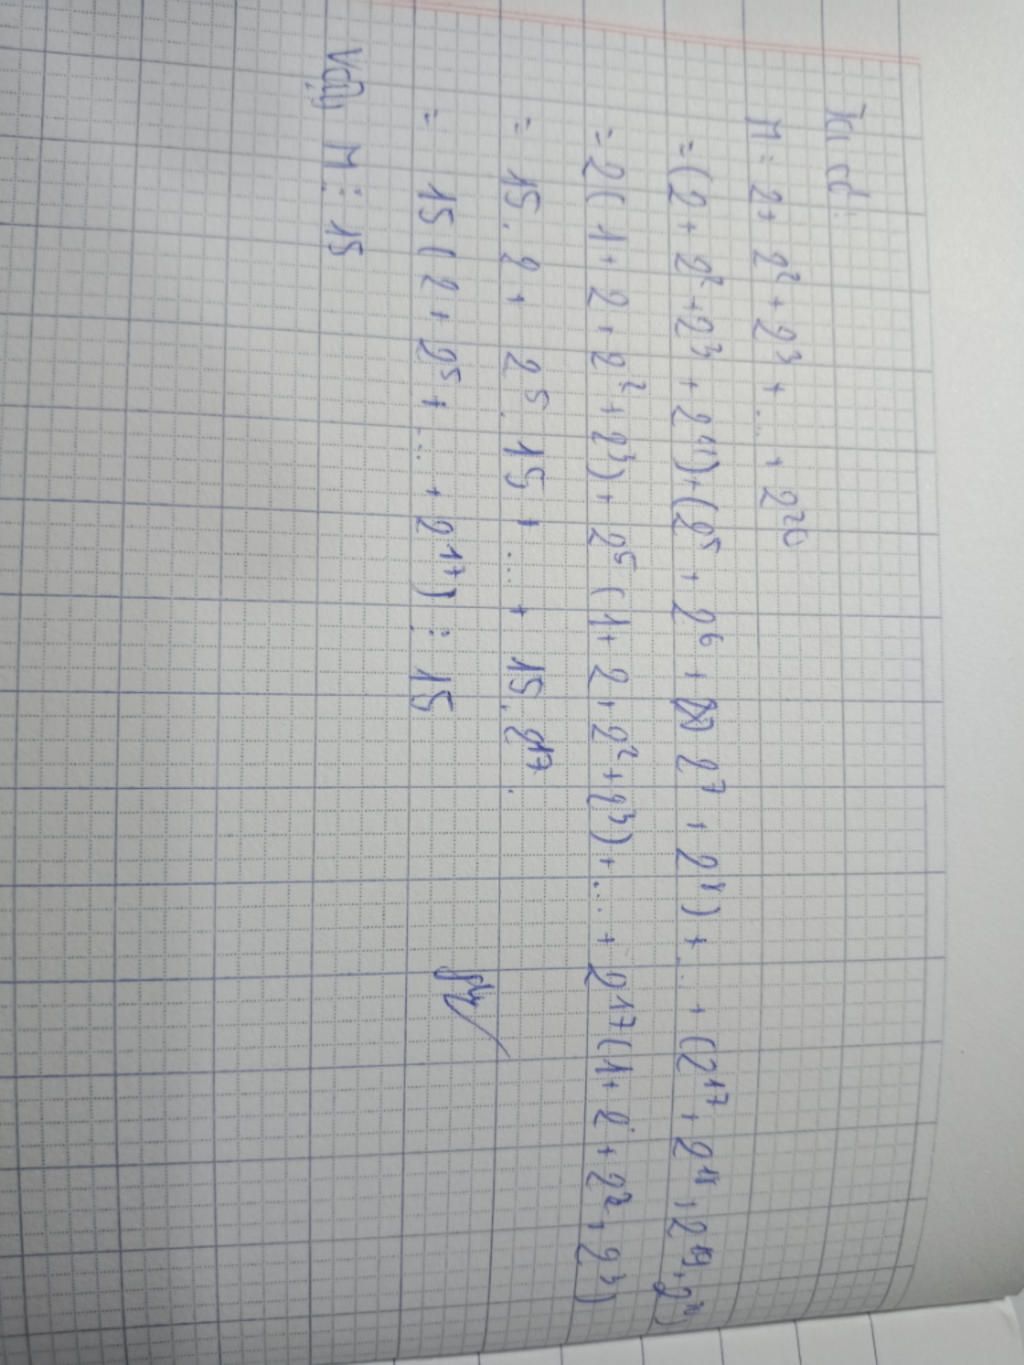 Ta có:
M = 2 + 2² + 2³ + ... + 2²⁰
= (2 + 2² + 2³ + 2⁴) + (2⁵ + 2⁶ + 2⁷ + 2⁸) + ... + (2¹⁷ + 2¹⁸ + 2¹⁹ + 2²⁰)
= 2(1 + 2 + 2² + 2³) + 2⁵(1 + 2 + 2² + 2³) + ... + 2¹⁷(1 + 2 + 2² + 2³)
= 15 . 2 + 2⁵ . 15 + ... + 15 . 2¹⁷ .
= 15(2 + 2⁵ + ... + 2¹⁷) ⋮ 15
Vậy M ⋮ 15